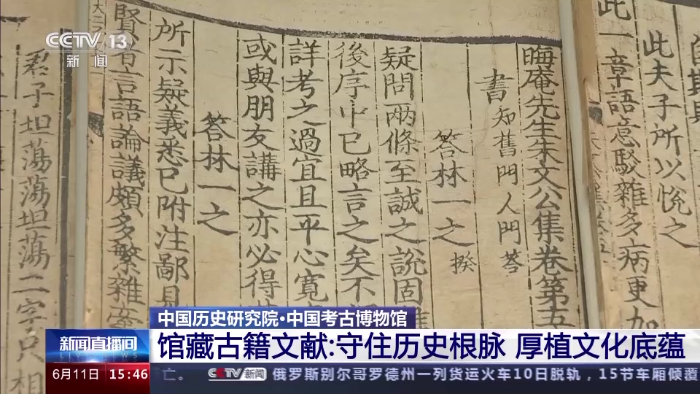 CCTV 13
新闻
此夫子所以悅之
此一章語意駁雜多病更加
晦庵先生朱文公集卷第五
書 知舊門人問答
答林一之 揆
疑問兩條至誠之說固
後序中已略言之矣不
詳考之過宜且平心寬
或與朋友講之亦必得
答林一之
所示疑義悉已附注鄙見
賢者言語論議頗多繁雜
君子坦蕩蕩坦蕩二字只相
中国历史研究院·中国考古博物馆
新闻直播间
馆藏古籍文献:守住历史根脉 厚植文化底蕴
6月11日 15:46
亡。 CCTV新闻 俄罗斯别尔哥罗德州一列货运火车10日脱轨，15节车厢倾覆